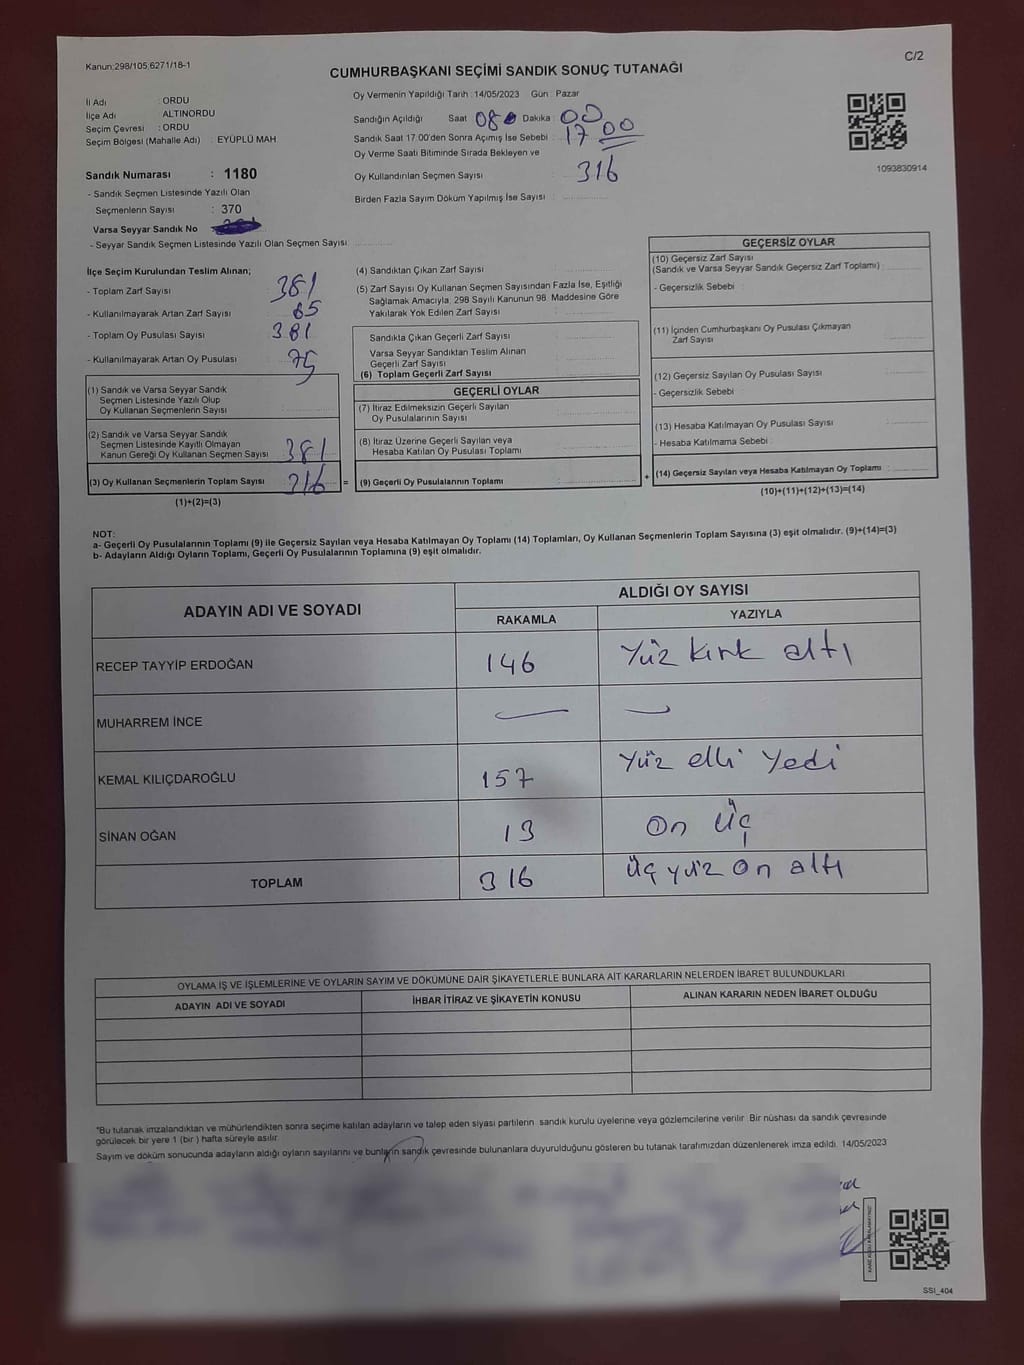 Kanun:298/105,6271/18-1
C/2
CUMHURBAŞKANI SEÇİMİ SANDIK SONUÇ TUTANAĞI
İl Adı : ORDU
İlçe Adı : ALTINORDU
Seçim Çevresi : ORDU
Seçim Bölgesi (Mahalle Adı) : EYÜPLÜ MAH
Oy Vermenin Yapıldığı Tarih : 14/05/2023 Gün : Pazar
Sandığın Açıldığı Saat 08 Dakika : 00
Sandık Saat 17.00'den Sonra Açımış İse Sebebi : 17 00
Oy Verme Saati Bitiminde Sırada Bekleyen ve
Oy Kullandırılan Seçmen Sayısı : 316
Birden Fazla Sayım Döküm Yapılmış İse Sayısı :
1093830914
Sandık Numarası : 1180
- Sandık Seçmen Listesinde Yazılı Olan
Seçmenlerin Sayısı : 370
Varsa Seyyar Sandık No
- Seyyar Sandık Seçmen Listesinde Yazılı Olan Seçmen Sayısı:
İlçe Seçim Kurulundan Teslim Alınan;
- Toplam Zarf Sayısı 381
- Kullanılmayarak Artan Zarf Sayısı : 65
- Toplam Oy Pusulası Sayısı : 381
- Kullanılmayarak Artan Oy Pusulası : 75
(1) Sandık ve Varsa Seyyar Sandık
Seçmen Listesinde Yazılı Olup
Oy Kullanan Seçmenlerin Sayısı :
(2) Sandık ve Varsa Seyyar Sandık
Seçmen Listesinde Kayıtlı Olmayan
Kanun Gereği Oy Kullanan Seçmen Sayısı : 381
(3) Oy Kullanan Seçmenlerin Toplam Sayısı : 316 =
(1)+(2)=(3)
(4) Sandıktan Çıkan Zarf Sayısı :
(5) Zarf Sayısı Oy Kullanan Seçmen Sayısından Fazla İse, Eşitliği
Sağlamak Amacıyla, 298 Sayılı Kanunun 98. Maddesine Göre
Yakılarak Yok Edilen Zarf Sayısı :
Sandıkta Çıkan Geçerli Zarf Sayısı :
Varsa Seyyar Sandıktan Teslim Alınan
Geçerli Zarf Sayısı :
(6) Toplam Geçerli Zarf Sayısı :
GEÇERLİ OYLAR
(7) İtiraz Edilmeksizin Geçerli Sayılan
Oy Pusulalarının Sayısı :
(8) İtiraz Üzerine Geçerli Sayılan veya
Hesaba Katılan Oy Pusulası Toplamı :
(9) Geçerli Oy Pusulalarının Toplamı : +
GEÇERSİZ OYLAR
(10) Geçersiz Zarf Sayısı
(Sandık ve Varsa Seyyar Sandık Geçersiz Zarf Toplamı) :
- Geçersizlik Sebebi :
(11) İçinden Cumhurbaşkanı Oy Pusulası Çıkmayan
Zarf Sayısı :
(12) Geçersiz Sayılan Oy Pusulası Sayısı :
- Geçersizlik Sebebi :
(13) Hesaba Katılmayan Oy Pusulası Sayısı :
- Hesaba Katılmama Sebebi :
(14) Geçersiz Sayılan veya Hesaba Katılmayan Oy Toplamı :
(10)+(11)+(12)+(13)=(14)
NOT:
a- Geçerli Oy Pusulalarının Toplamı (9) ile Geçersiz Sayılan veya Hesaba Katılmayan Oy Toplamı (14) Toplamları, Oy Kullanan Seçmenlerin Toplam Sayısına (3) eşit olmalıdır. (9)+(14)=(3)
b- Adayların Aldığı Oyların Toplamı, Geçerli Oy Pusulalarının Toplamına (9) eşit olmalıdır.
ADAYIN ADI VE SOYADI ALDIĞI OY SAYISI
RAKAMLA YAZIYLA
RECEP TAYYİP ERDOĞAN 146 Yüz kırk altı
MUHARREM İNCE — —
KEMAL KILIÇDAROĞLU 157 Yüz elli Yedi
SİNAN OĞAN 13 On üç
TOPLAM 316 üç yüz on altı
OYLAMA İŞ VE İŞLEMLERİNE VE OYLARIN SAYIM VE DÖKÜMÜNE DAİR ŞİKAYETLERLE BUNLARA AİT KARARLARIN NELERDEN İBARET BULUNDUKLARI
ADAYIN ADI VE SOYADI İHBAR İTİRAZ VE ŞİKAYETİN KONUSU ALINAN KARARIN NEDEN İBARET OLDUĞU
*Bu tutanak imzalandıktan ve mühürlendikten sonra seçime katılan adayların ve talep eden siyasi partilerin sandık kurulu üyelerine veya gözlemcilerine verilir. Bir nüshası da sandık çevresinde
görülecek bir yere 1 (bir ) hafta süreyle asılır.
Sayım ve döküm sonucunda adayların aldığı oyların sayılarını ve bunların sandık çevresinde bulunanlara duyurulduğunu gösteren bu tutanak tarafımızdan düzenlenerek imza edildi. 14/05/2023
SSI_404